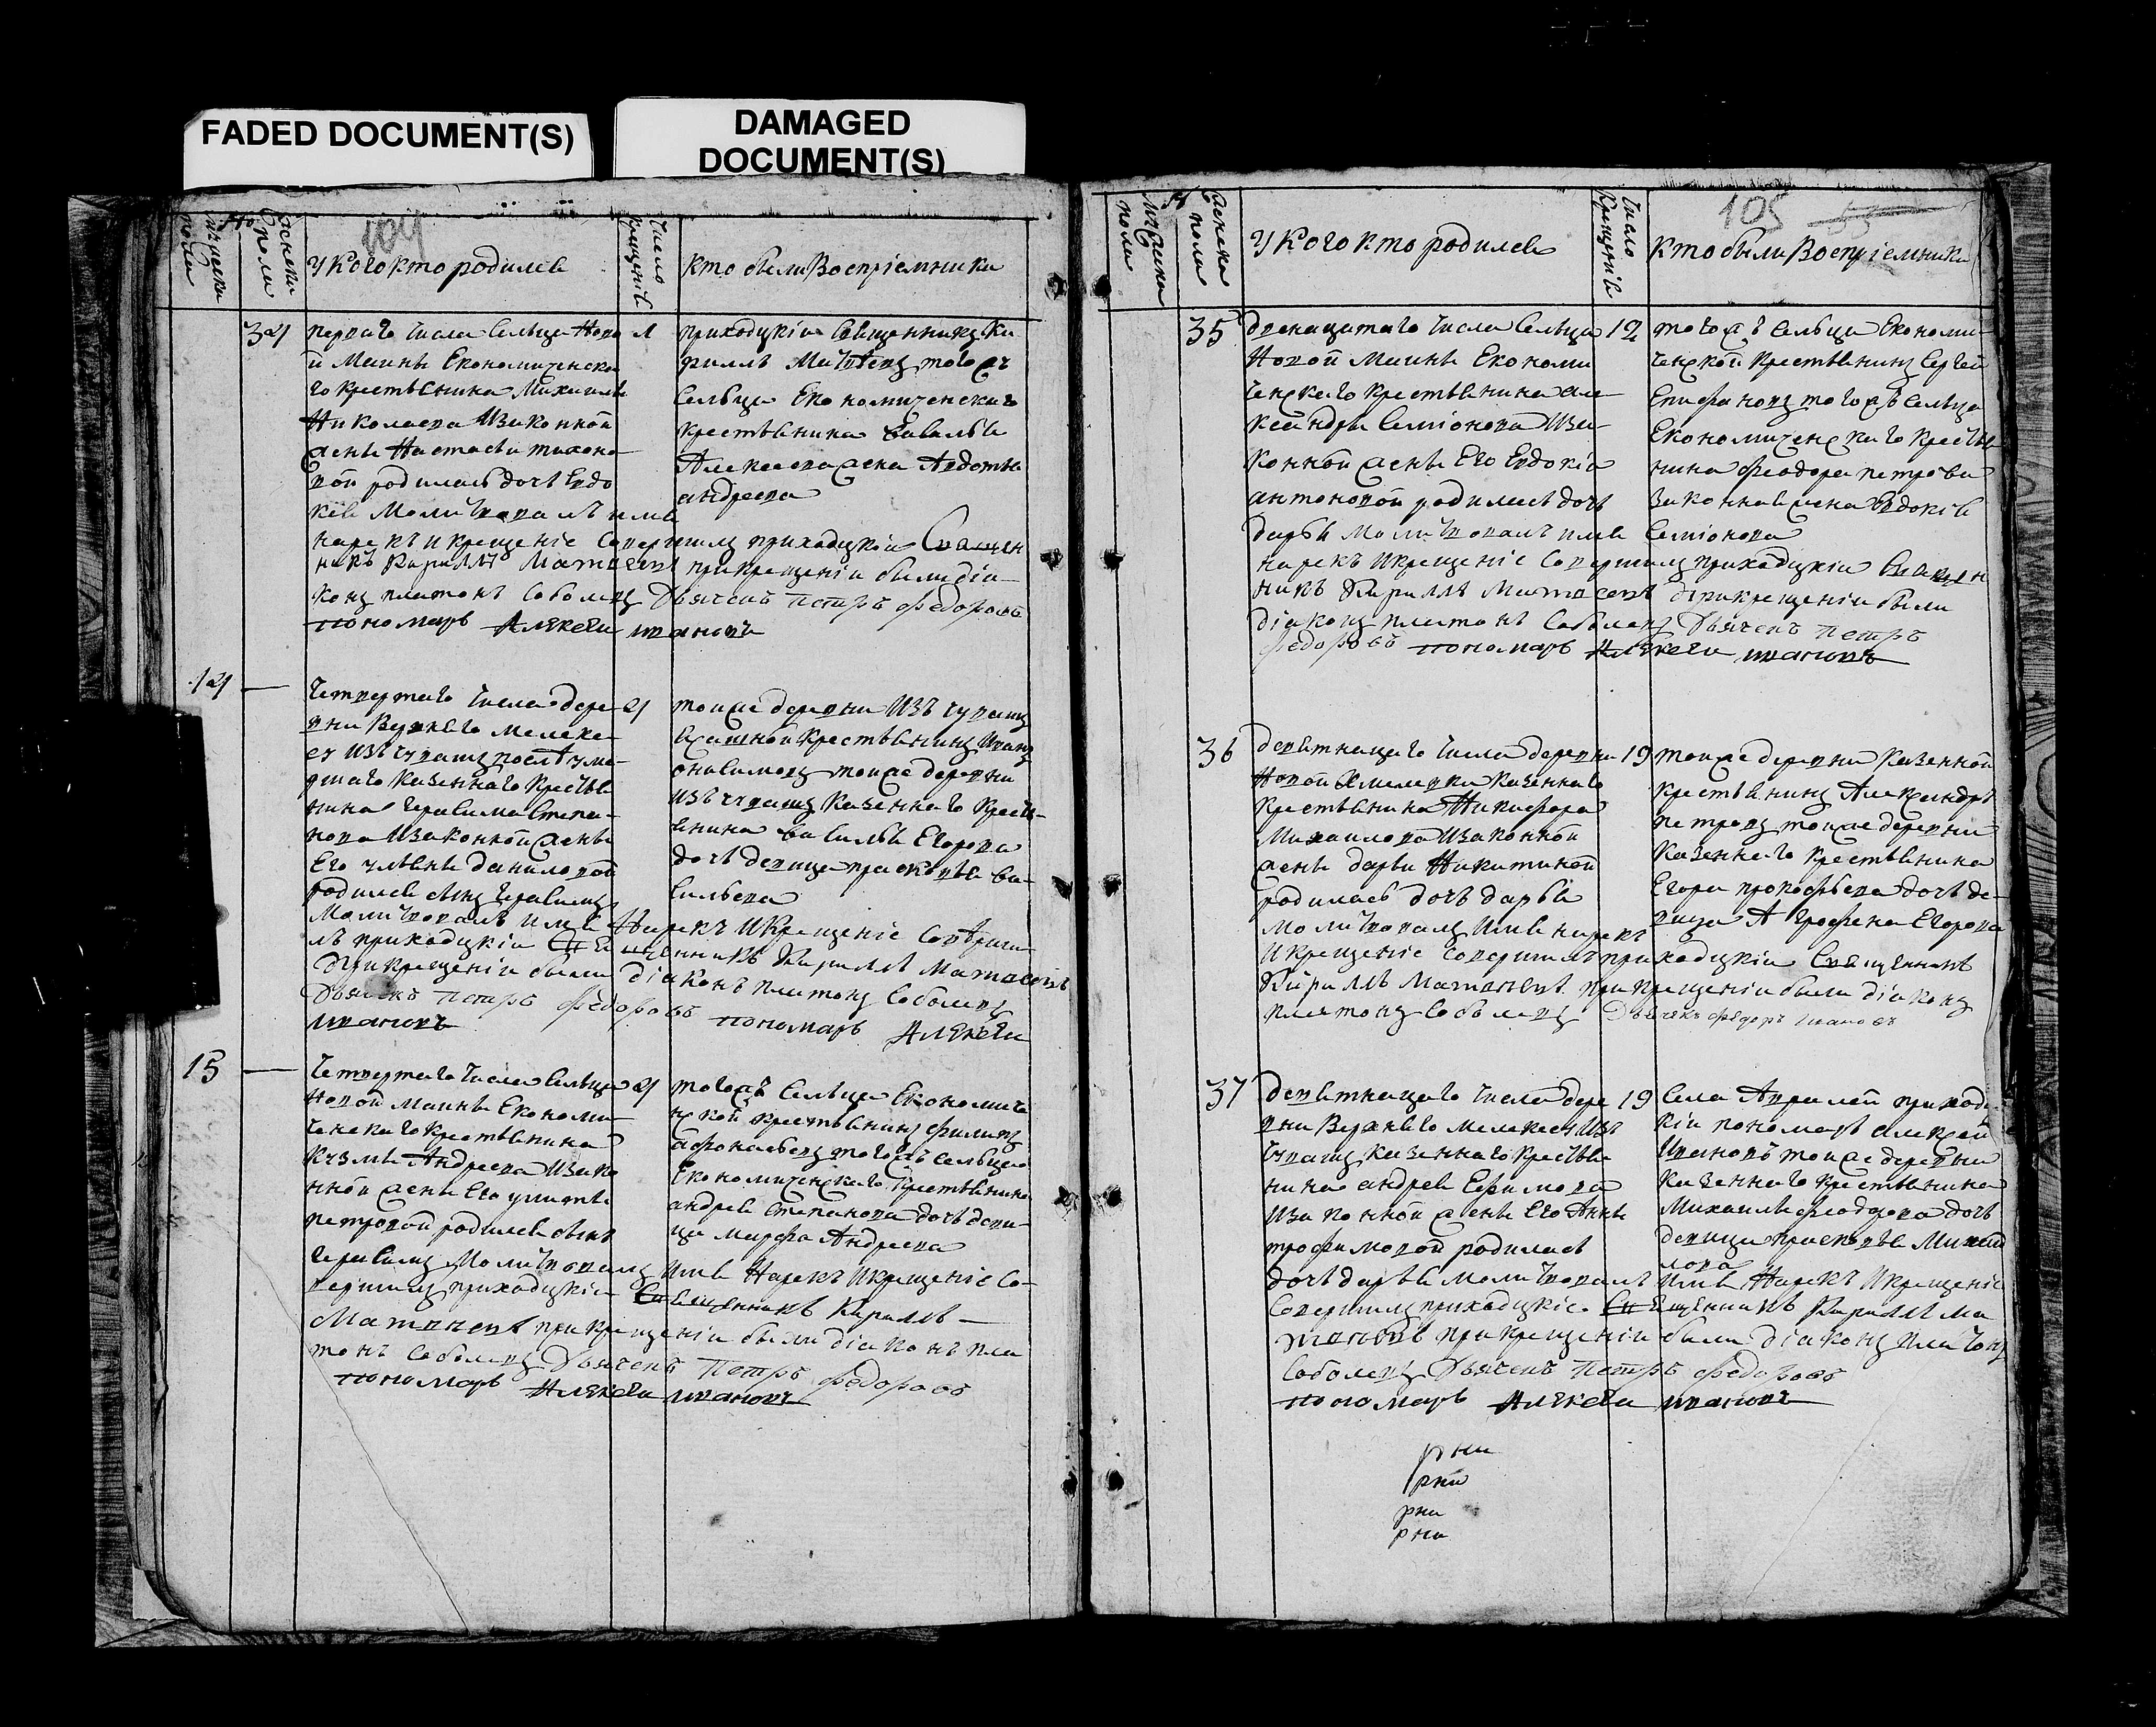 FADED DOCUMENT(S)
DAMAGED
DOCUMENT(S)
104
№
мужеска пола
женска пола
У кого кто родился
число крещенія
кто были Воспріемники
34
перваго числа Сельца Ново
й Маины Економическа
го крестьянина Михаила
Николаева Изаконной
жены Настасьи тихоно
вой родилась дочь Евдо
кия Молитвовалъ имя
нарекъ и крещеніе Совершилъ приходцкіи Священ
никъ Кириллъ Матвеевъ прикрещеніи были діа
конъ платонъ Соболевъ Дьячекъ Петръ Федоровъ
пономарь Алексеи ивановъ
1
приходцкіи Священникъ Ки
риллъ Матвеевъ тогожъ
Сельца Економическаго
крестьянина Василья
Алексеева жена Авдотья
андреева
14
Четвертаго числа дере
вни Верхняго Мелеке
су Изъ чувашъ
дшаго казеннаго крестья
нина Герасима Степа-
нова Изаконной жены
Его ульяны даниловой
родился сынъ Герасимъ
Молитвовалъ имя Нарекъ И Крещеніе Соверши
лъ приходцкіи Священникъ Кириллъ Матвеевъ
Прикрещеніи были діаконъ платонъ Соболевъ
Дьячекъ Петръ Федоровъ пономарь Алексеи
ивановъ
4
тоиже деревни Изъ чувашъ
крестьянинъ Иванъ
тоиже деревни
изъ чувашъ казеннаго крест-
янина Василья Егорова
дочь девица прасковья Ва-
сильева
15
Четвертаго числа Сельца
Новой Маины Економи-
ческаго крестьянина
кузмы Андреева Изако
нной жены Его улиты
петровой родился сынъ
Герасимъ Молитвовалъ Имя Нарекъ Икрещеніе Со-
вершилъ приходцкіи Священникъ Кириллъ
Матвеевъ прикрещеніи были діаконъ пла
тонъ Соболевъ Дьячекъ Петръ Федоровъ
пономарь Алексеи ивановъ
4
тогожъ Сельца Економиче
нской крестьянинъ филипъ
афонасьевъ тогожъ сельца
Економическаго крестьянина
андрея степанова дочь деви-
ца марфа Андреева
105
53
№
мужеска пола
женска пола
У кого кто родился
число крещенія
кто были Воспріемники
35
двенацатаго числа Сельца
Новой Маины Економи
ческаго крестьянина але
ксандра Семіонова Иза-
конной жены Его Евдокіи
антоновой родилась дочь
дарья Молитвовалъ имя
нарекъ Икрещеніе Совершилъ приходцкіи Священ
никъ Кириллъ Матвеевъ прикрещеніи были
діаконъ платонъ Соболевъ Дьячекъ Петръ
Федоровъ пономарь Алексеи ивановъ
12
тогожъ Сельца Економи
ческой крестьянинъ Сергей
Епифановъ тогожъ Сельца
Економическаго крестья
нина феодора петрова
законная жена Евдокія
Семіонова
36
девятнацаго числа деревни
Новой Хмелевки казеннаго
крестьянина Никифора
Михаилова Изаконной
жены дарьи Никитиной
родилась дочь дарья
Молитвовалъ Имя нарекъ
Икрещеніе Совершилъ приходцкіи Священникъ
Кириллъ Матвеевъ прикрещеніи были діаконъ
платонъ Соболевъ Дьячекъ Федоръ Ивановъ
19
тоиже деревни казенной
крестьянинъ Александръ
петровъ тоиже деревни
казеннаго крестьянина
Егора прокофьева дочь де-
вица Аграфена Егорова
37
девятнацаго числа дере
вни Верхняго мелекесу Изъ
чувашъ казеннаго крестья
нина андрея Ефимова
Изаконной жены Его Анны
трофимовой родилась
дочь дарья молитвовалъ Имя Нарекъ Икрещеніе
Совершилъ приходцкіи Священникъ Кириллъ Ма
твеевъ прикрещеніи были діаконъ платонъ
Соболевъ Дьячекъ Петръ Федоровъ
пономарь Алексеи ивановъ
19
Села Авралей приход
кіи пономарь алексей
Ивановъ тоиже деревни
казеннаго крестьянина
Михаила феодорова дочь
девица прасковья Михай
лова
рни
рни
рни
рни